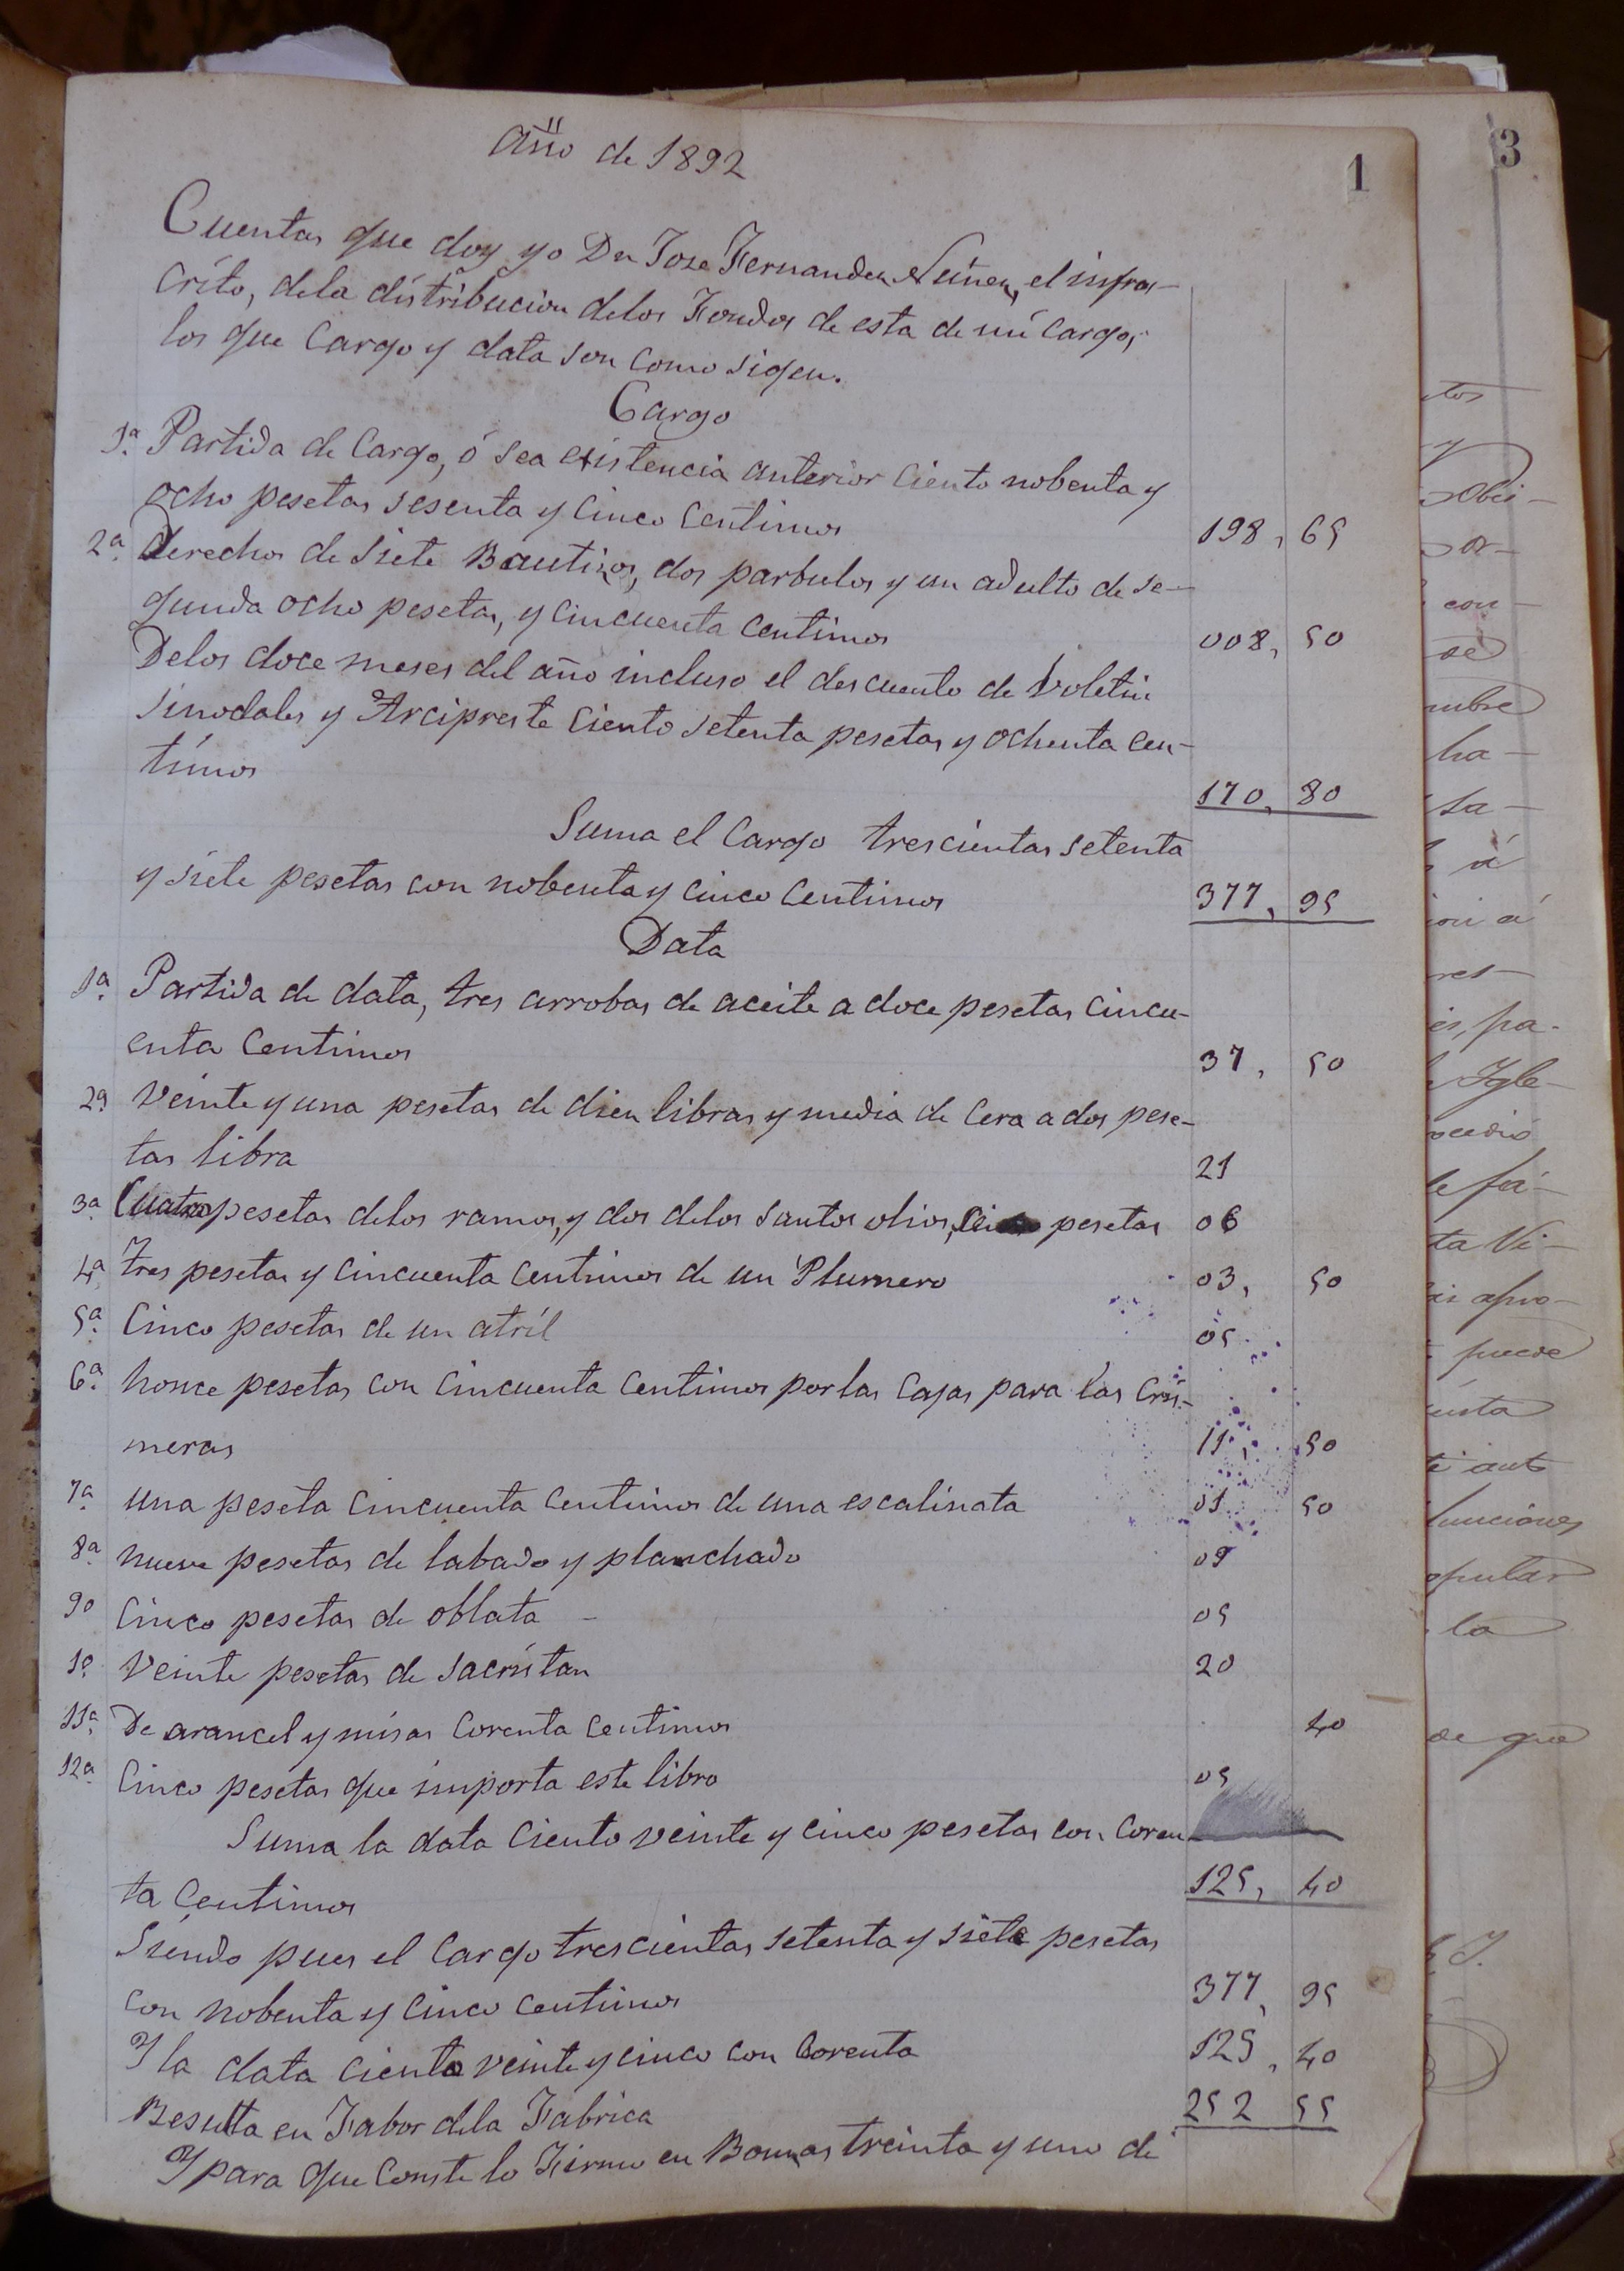 Año de 1892
1
3
Cuentas que doy yo Dn Jose Fernandez Nuñez, el infras-
crito, dela distribucion delos Fondos de esta de mi cargo,
los que Cargo y data son como sigen.
Cargo
1ª Partida de Cargo, ó sea existencia anterior Ciento nobenta y
ocho pesetas sesenta y cinco Centimos 198, 65
2ª Derechos de siete Bautizos, dos parbulos y un adulto de se-
gunda ocho pesetas, y cincuenta centimos 008, 50
Delos doce meses del año incluso el descuento de Voletin
Sinodales y Arcipreste Ciento setenta pesetas y ochenta cen-
timos 170, 80
Suma el Cargo trescientas setenta
y siete pesetas con nobenta y cinco Centimos 377, 95
Data
1ª Partida de data, tres arrobas de aceite a doce pesetas cincu-
enta Centimos 37, 50
2ª Veinte y una pesetas de diez libras y media de Cera a dos pese-
tas libra 21
3ª Cuatro pesetas delos ramos, y dos delos santos olios, seis pesetas 06
4ª Tres pesetas y cincuenta centimos de un Plumero 03, 50
5ª Cinco pesetas de un atríl 05
6ª honce pesetas con cincuenta centimos por las cajas para las cris-
meras 11, 50
7ª una peseta cincuenta centimos de una escalinata 01 50
8ª nueve pesetas de labado y planchado 09
9º Cinco pesetas de oblata 05
1º Veinte pesetas de sacristan 20
11ª De arancel y misas Corenta Centimos 40
12ª Cinco pesetas que importa este libro 05
Suma la data Ciento veinte y cinco pesetas con Coren
ta Centimos 125, 40
Siendo pues el Cargo trescientas setenta y siete pesetas
con nobenta y cinco centimos 377, 95
Y la data ciento veinte y cinco con Corenta 125, 40
Resulta en Fabor dela Fabrica 252 55
Y para que Conste lo Firmo en treinta y uno de